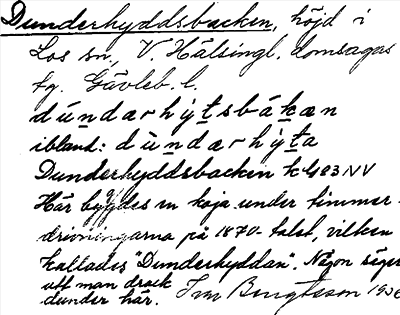 Dunderhyddsbacken, höjd i
Los sn, V. Hälsingl. domsagas
tg. Gävleb. l.
dúndarhy̡tsbákæn
ibland: dùndærhy̡ta
Dunderhyddsbacken k 483 NV
Här byggdes en koja under timmer-
drivningarna på 1870-talet, vilken
kallades "Dunderhyddan". Någon säger
att man drack
dunder här. Bengtsson